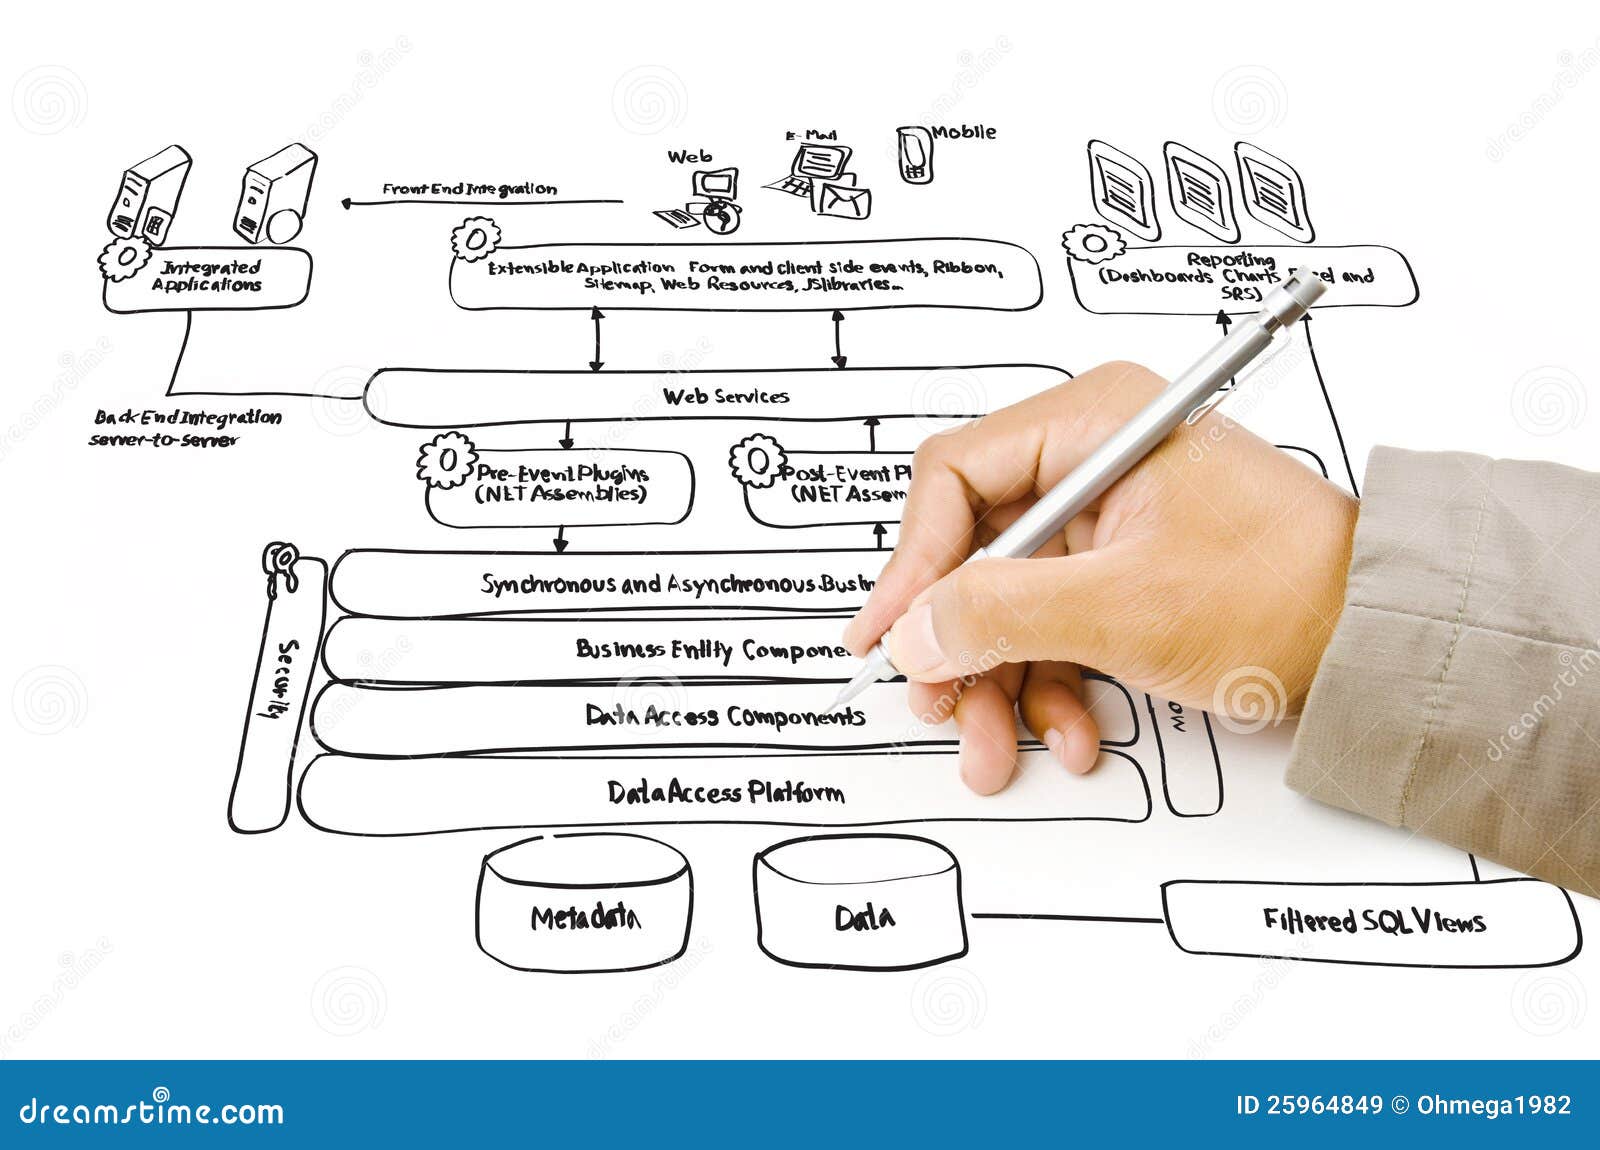 Web
E-Mail
Mobile
Front End Integration
Integrated
Applications
Extensible Application Form and client side events, Ribbon,
Sitemap, Web Resources, JSlibraries...
Reporting
(Dashboards Charts and
SRS)
Web Services
Back End Integration
server-to-server
Pre-Event Plugins
(NET Assemblies)
Post-Event Pl
(NET Assem
Synchronous and Asynchronous Busin
Business Entity Compone
Security
ow
Data Access Components
Data Access Platform
Metadata
Data
Filtered SQL Views
dreamstime.com
ID 25964849 © Ohmega1982